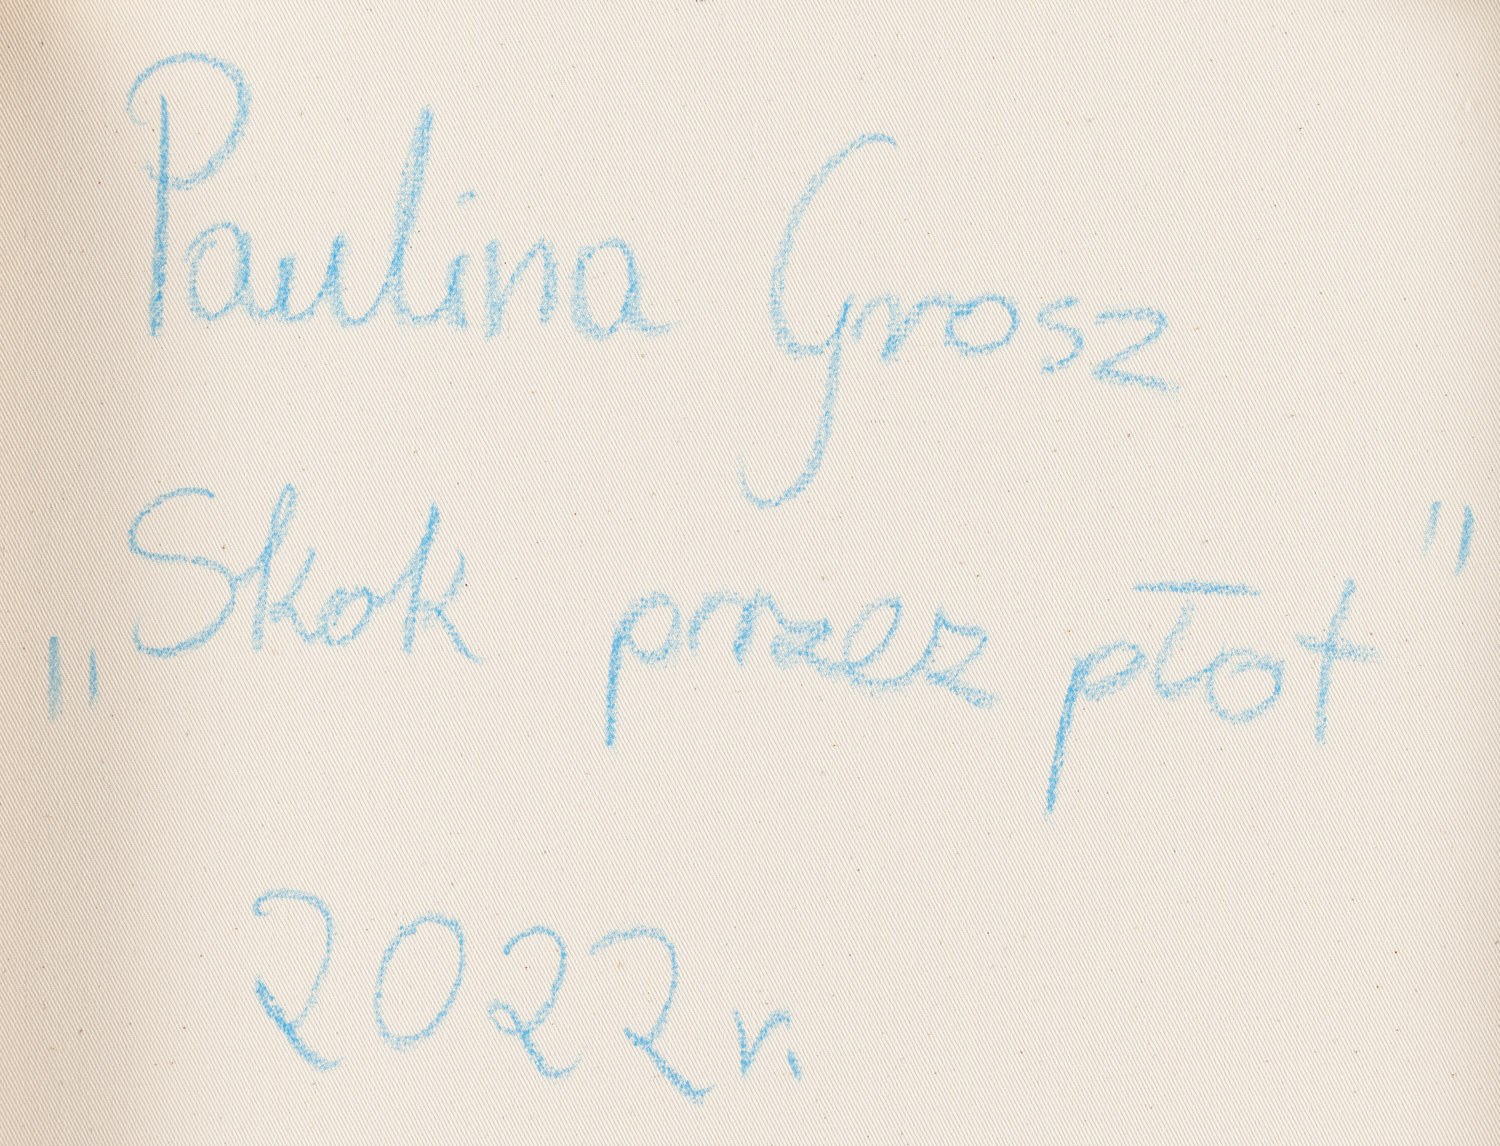 Paulina Grosz
„Skok przez płot”
2022r.